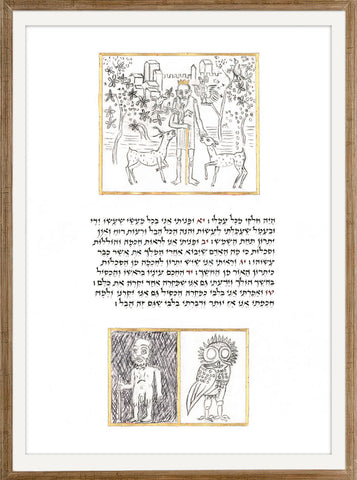 היה חלקי מכל עמלי: יא ופניתי אני בכל מעשי שעשו ידי
ובעמל שעמלתי לעשות והנה הכל הבל ורעות רוח ואין
יתרון תחת השמש: יב ופניתי אני לראות חכמה והוללות
וסכלות כי מה האדם שיבוא אחרי המלך את אשר כבר
עשוהו: יג וראיתי אני שיש יתרון לחכמה מן הסכלות
כיתרון האור מן החשך: יד החכם עיניו בראשו והכסיל
בחשך הולך וידעתי גם אני שמקרה אחד יקרה את כלם:
טו ואמרתי אני בלבי כמקרה הכסיל גם אני יקרני ולמה
חכמתי אני אז יותר ודברתי בלבי שגם זה הבל: